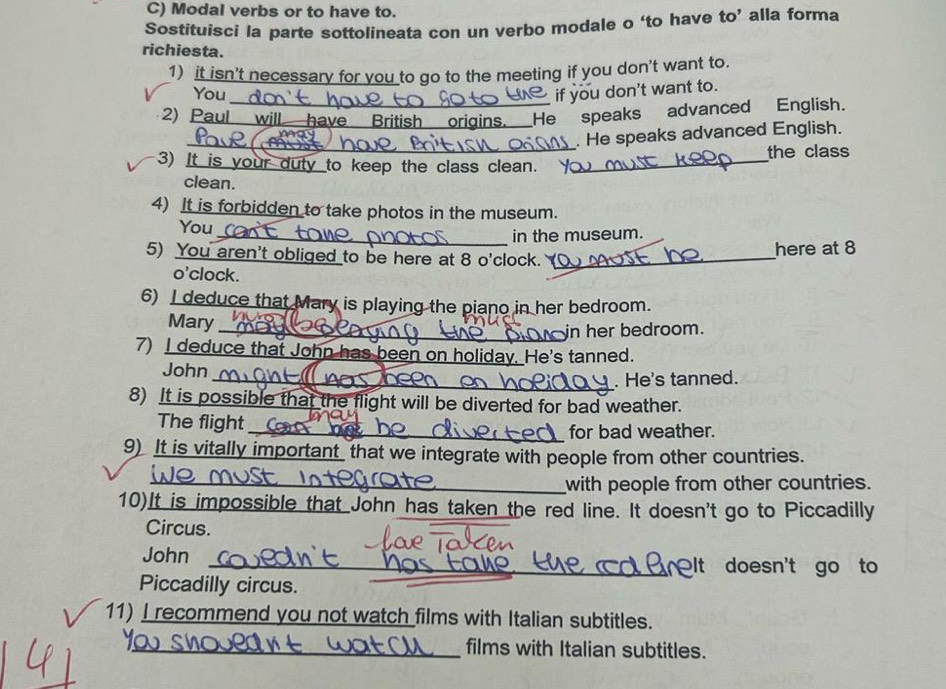 C) Modal verbs or to have to.
Sostituisci la parte sottolineata con un verbo modale o ‘to have to’ alla forma
richiesta.
1) it isn’t necessary for you to go to the meeting if you don’t want to.
You don't have to go to the if you don’t want to.
2) Paul will have British origins. He speaks advanced English.
may
have British origins. He speaks advanced English.
3) It is your duty to keep the class clean. You must keep the class
clean.
4) It is forbidden to take photos in the museum.
You can't take photos in the museum.
5) You aren’t obliged to be here at 8 o’clock. You must be here at 8
o’clock.
6) I deduce that Mary is playing the piano in her bedroom.
must
Mary may be playing the piano in her bedroom.
7) I deduce that John has been on holiday. He’s tanned.
John might has been on holiday. He’s tanned.
8) It is possible that the flight will be diverted for bad weather.
may
The flight be diverted for bad weather.
9) It is vitally important that we integrate with people from other countries.
We must integrate with people from other countries.
10) It is impossible that John has taken the red line. It doesn’t go to Piccadilly
Circus.
Taken
John couldn't has take the red line It doesn’t go to
Piccadilly circus.
11) I recommend you not watch films with Italian subtitles.
You shouldn't watch films with Italian subtitles.